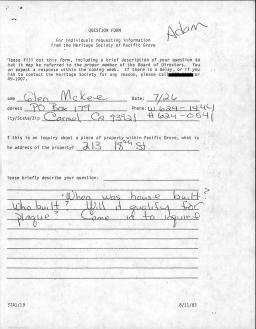 Adam
QUESTION FORM
For individuals requesting information
from the Heritage Society of Pacific Grove
lease fill out this form, including a brief description of your question so
hat it may be referred to the proper member of the Board of Directors. You
an expect a response within the coming week. If there is a delay, or if you
ish to contact the Heritage Society for any reason, please call or
49-1007.
ame Glen McKee Date: 7/26
ddress PO Box 179 Phone: w 624-1444
ity/State/Zip Carmel Ca 93921 H 624-0541
f this is an inquiry about a piece of property within Pacific Grove, what is
he address of the property? 213 18th St
lease briefly describe your question:
When was house built?
Who built? Will it qualify for
plaque? Came in to inquire
STA1/19 8/11/83